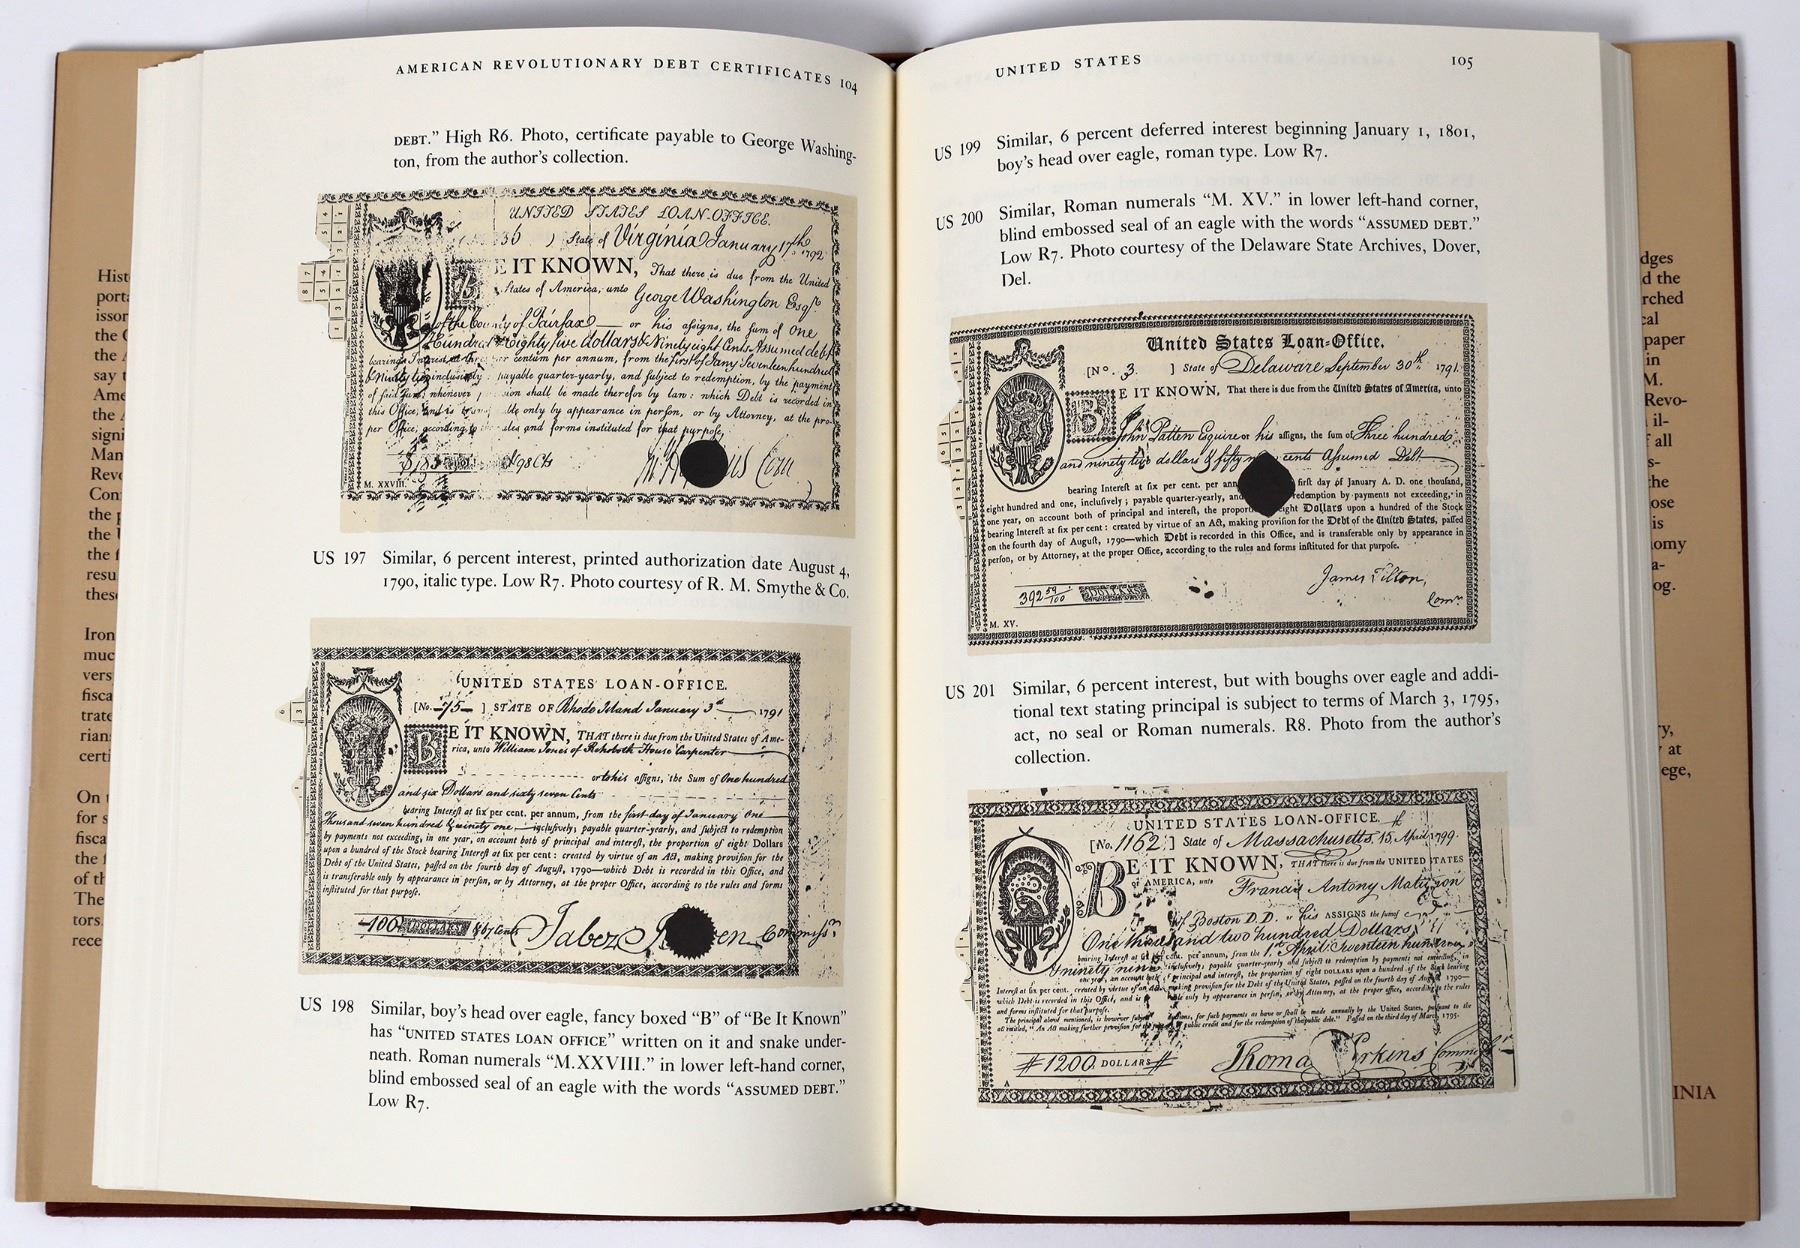 AMERICAN REVOLUTIONARY DEBT CERTIFICATES 104
DEBT.” High R6. Photo, certificate payable to George Washing-
ton, from the author's collection.
UNITED STATES LOAN-OFFICE.
36 ) State of Virginia January 17th 1792
BE IT KNOWN, That there is due from the United
States of America, unto George Washington Esqr.
of the County of Fairfax or his assigns, the sum of One
Hundred Eighty five dollars & Ninety eight Cents Assumed debt
bearing Interest at per centum per annum, from the first of Jany Seventeen hundred
& Ninety two inclusively payable quarter-yearly, and subject to redemption, by the payment
of said sum, whenever shall be made therefor by law: which Debt is recorded in
this Office, and is only by appearance in person, or by Attorney, at the pro-
per Office, according to rules and forms instituted for that purpose,
$185 98 Cts
M. XXVIII.
US 197 Similar, 6 percent interest, printed authorization date August 4,
1790, italic type. Low R7. Photo courtesy of R. M. Smythe & Co.
UNITED STATES LOAN-OFFICE.
[No. 75 ] STATE OF Rhode Island January 3d 1791
BE IT KNOWN, THAT there is due from the United States of Ame-
rica, unto William Jones of Rehoboth House Carpenter
or his assigns, the Sum of One hundred
and six Dollars and sixty seven Cents
bearing Interest at six per cent. per annum, from the first day of January One
Thousand seven hundred & ninety one inclusively; payable quarter-yearly, and subject to redemption
by payments not exceeding, in one year, on account both of principal and interest, the proportion of eight Dollars
upon a hundred of the Stock bearing Interest at six per cent: created by virtue of an Act, making provision for the
Debt of the United States, passed on the fourth day of August, 1790—which Debt is recorded in this Office, and
is transferable only by appearance in person, or by Attorney, at the proper Office, according to the rules and forms
instituted for that purpose.
106 DOLLARS & 67 Cents Jabez Commissr.
US 198 Similar, boy's head over eagle, fancy boxed “B” of “Be It Known”
has “UNITED STATES LOAN OFFICE” written on it and snake under-
neath. Roman numerals “M.XXVIII.” in lower left-hand corner,
blind embossed seal of an eagle with the words “ASSUMED DEBT.”
Low R7.
UNITED STATES 105
US 199 Similar, 6 percent deferred interest beginning January 1, 1801,
boy's head over eagle, roman type. Low R7.
US 200 Similar, Roman numerals “M. XV.” in lower left-hand corner,
blind embossed seal of an eagle with the words “ASSUMED DEBT.”
Low R7. Photo courtesy of the Delaware State Archives, Dover,
Del.
United States Loan-Office.
[No. 3. ] State of Delaware September 30th 1791
BE IT KNOWN, That there is due from the United States of America, unto
John Patten Esquire or his assigns, the sum of Three hundred
and ninety two dollars & fifty cents Assumed Debt
bearing Interest at six per cent. per ann first day of January A. D. one thousand,
eight hundred and one, inclusively; payable quarter-yearly, and redemption by payments not exceeding, in
one year, on account both of principal and interest, the proport eight Dollars upon a hundred of the Stock
bearing Interest at six per cent: created by virtue of an Act, making provision for the Debt of the United States, passed
on the fourth day of August, 1790—which Debt is recorded in this Office, and is transferable only by appearance in
person, or by Attorney, at the proper Office, according to the rules and forms instituted for that purpose.
392 59/100 DOLLARS James Tilton,
Comr
M. XV.
US 201 Similar, 6 percent interest, but with boughs over eagle and addi-
tional text stating principal is subject to terms of March 3, 1795,
act, no seal or Roman numerals. R8. Photo from the author's
collection.
UNITED STATES LOAN-OFFICE.
[No. 1162 ] State of Massachusetts 15 April 1799.
BE IT KNOWN, THAT there is due from the UNITED STATES
of AMERICA, unto Francis Antony Matignon
of Boston D.D. or his ASSIGNS the sum of
One thousand two hundred Dollars
bearing Interest at six per cent. per annum, from the 1st April Seventeen hundred
& ninety nine inclusively; payable quarter-yearly, and subject to redemption by payments not exceeding, in
one year, on account both of principal and interest, the proportion of eight DOLLARS upon a hundred of the Stock bearing
Interest at six per cent. created by virtue of an Act making provision for the Debt of the United States, passed on the fourth day of August 1790—
which Debt is recorded in this Office, and is only by appearance in person, or by Attorney, at the proper office, according to the rules
and forms instituted for that purpose.
The principal above mentioned, is however for such payments as have or shall be made annually by the United States, pursuant to the
act entitled, “An Act making further provision for the public credit and for the redemption of the public debt.” Passed on the third day of March, 1795.
1200 DOLLARS Thoma rkins
A
Hist
the C
the A
say t
Ame
the A
Man
Reve
the p
the U
the f
these
Iron
much
fisca
certi
On t
for s
fisca
the f
of th
The
tors.
rece
dges
d the
rched
cal
paper
in
M.
Revo-
il-
f all
the
ose
is
nomy
og.
ege,
INIA